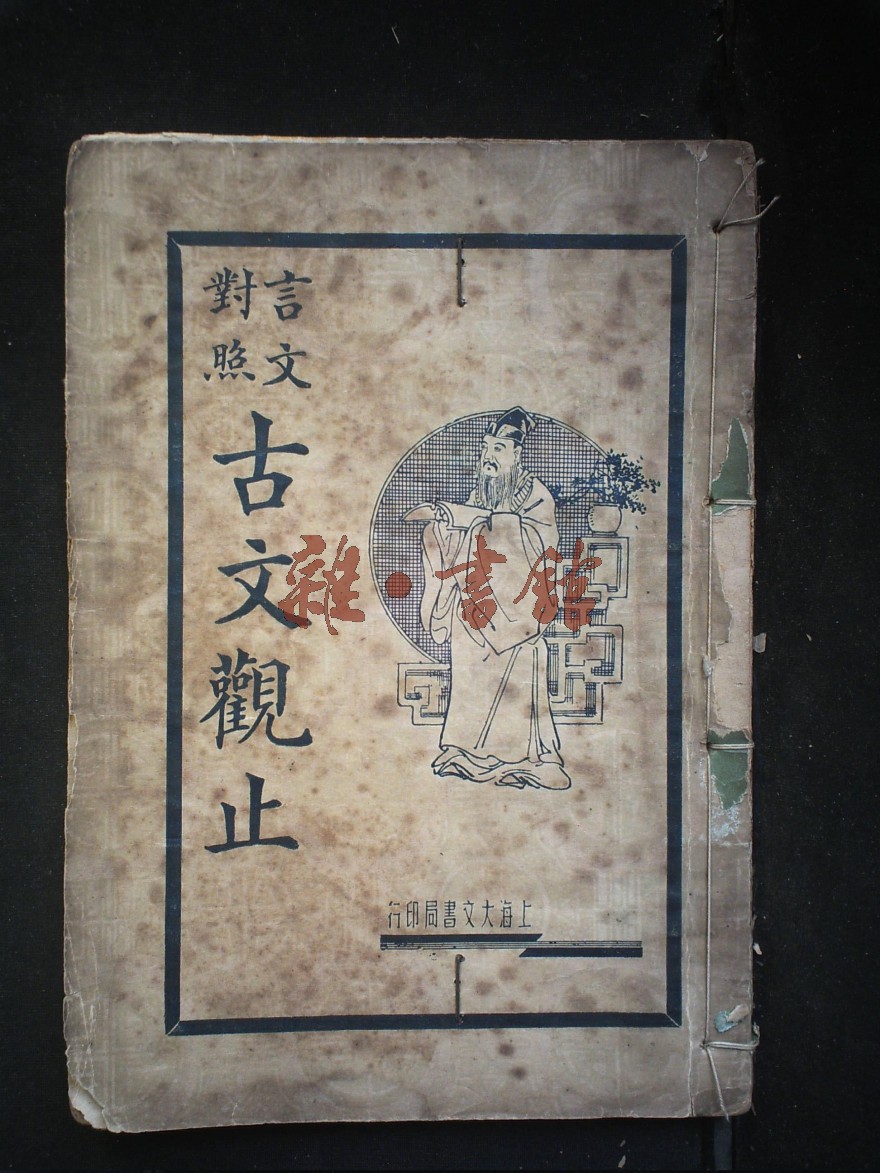 言文
對照
古文觀止
上海大文書局印行
雜·書館